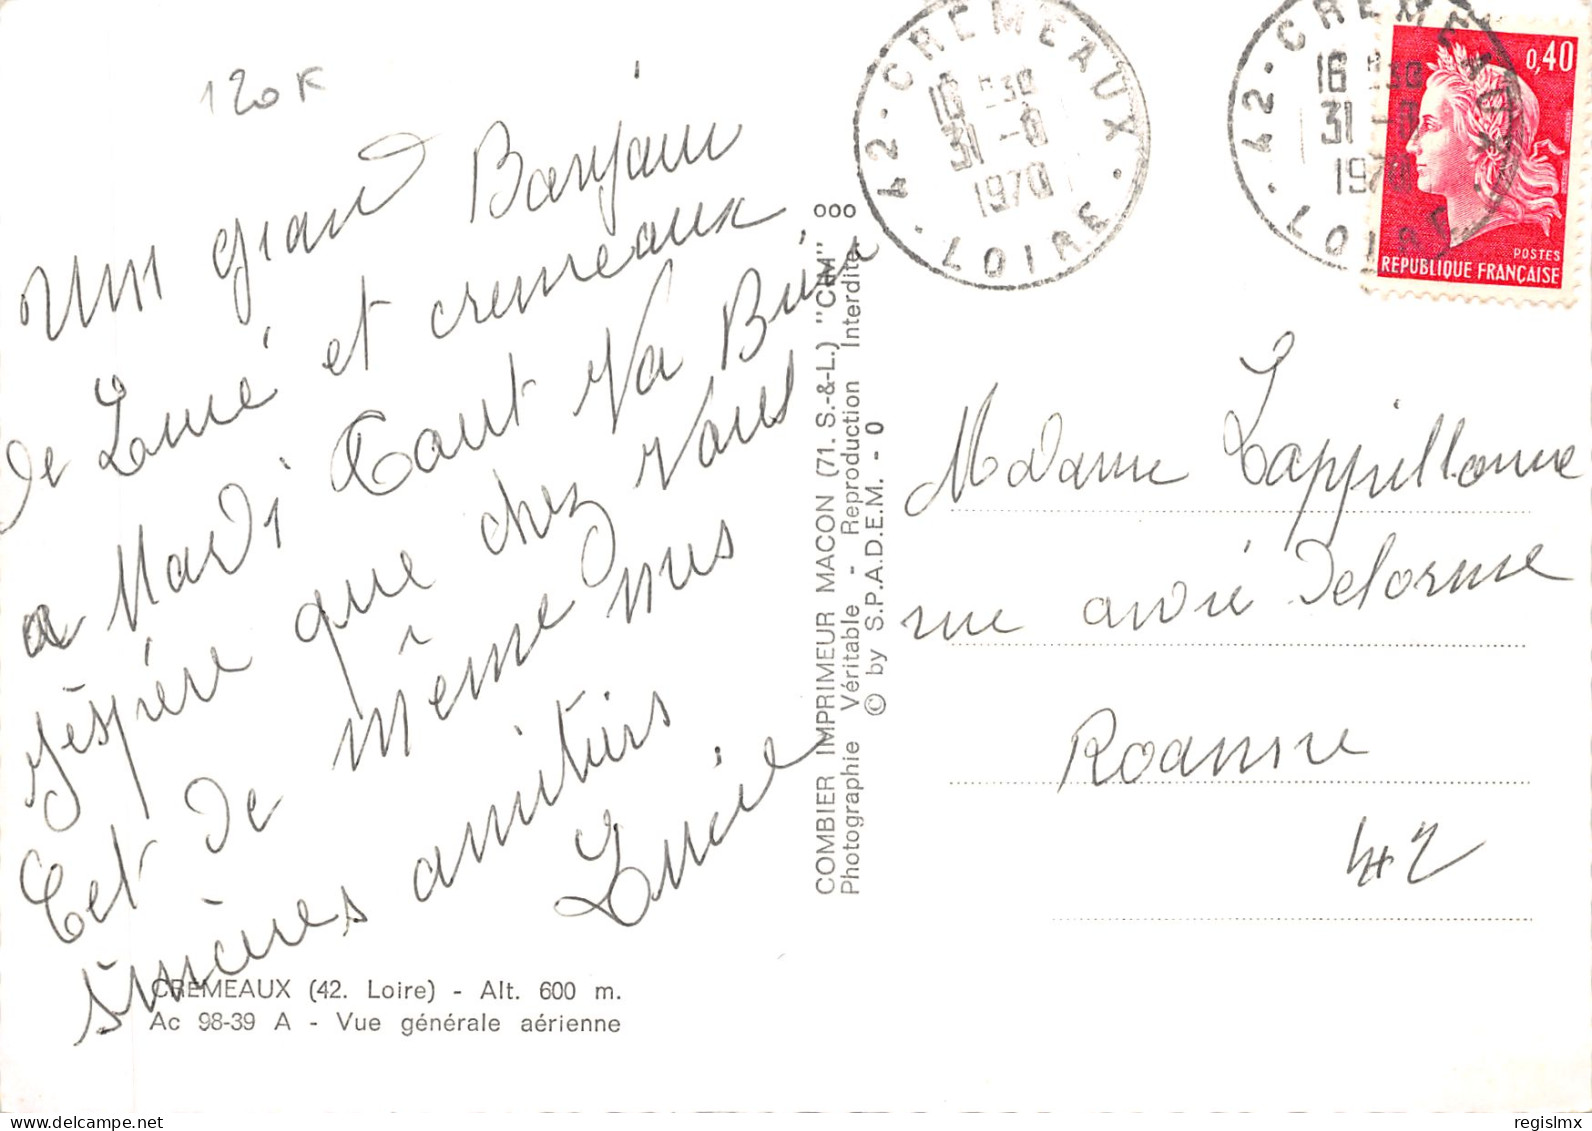 120 K
Un grand Bonjour
de Luré et cremeaux
a Mardi Tout Va Bien
j'éspére que chez vous
Cet de même nus
sincères amitiers
Lucie
CREMEAUX (42. Loire) - Alt. 600 m.
Ac 98-39 A - Vue générale aérienne
COMBIER IMPRIMEUR MACON (71. S.-&-L.) "CIM" ooo
Photographie Véritable - Reproduction Interdite
© by S.P.A.D.E.M. - 0
42 - CREMEAUX
16 H30
31 -8
1970
LOIRE
42 - CREMEAUX
16 H30
31 -8
1970
LOIRE
0,40
POSTES
REPUBLIQUE FRANÇAISE
Madame Lappillonne
rue andré Delorme
Roanne
42
regislmx